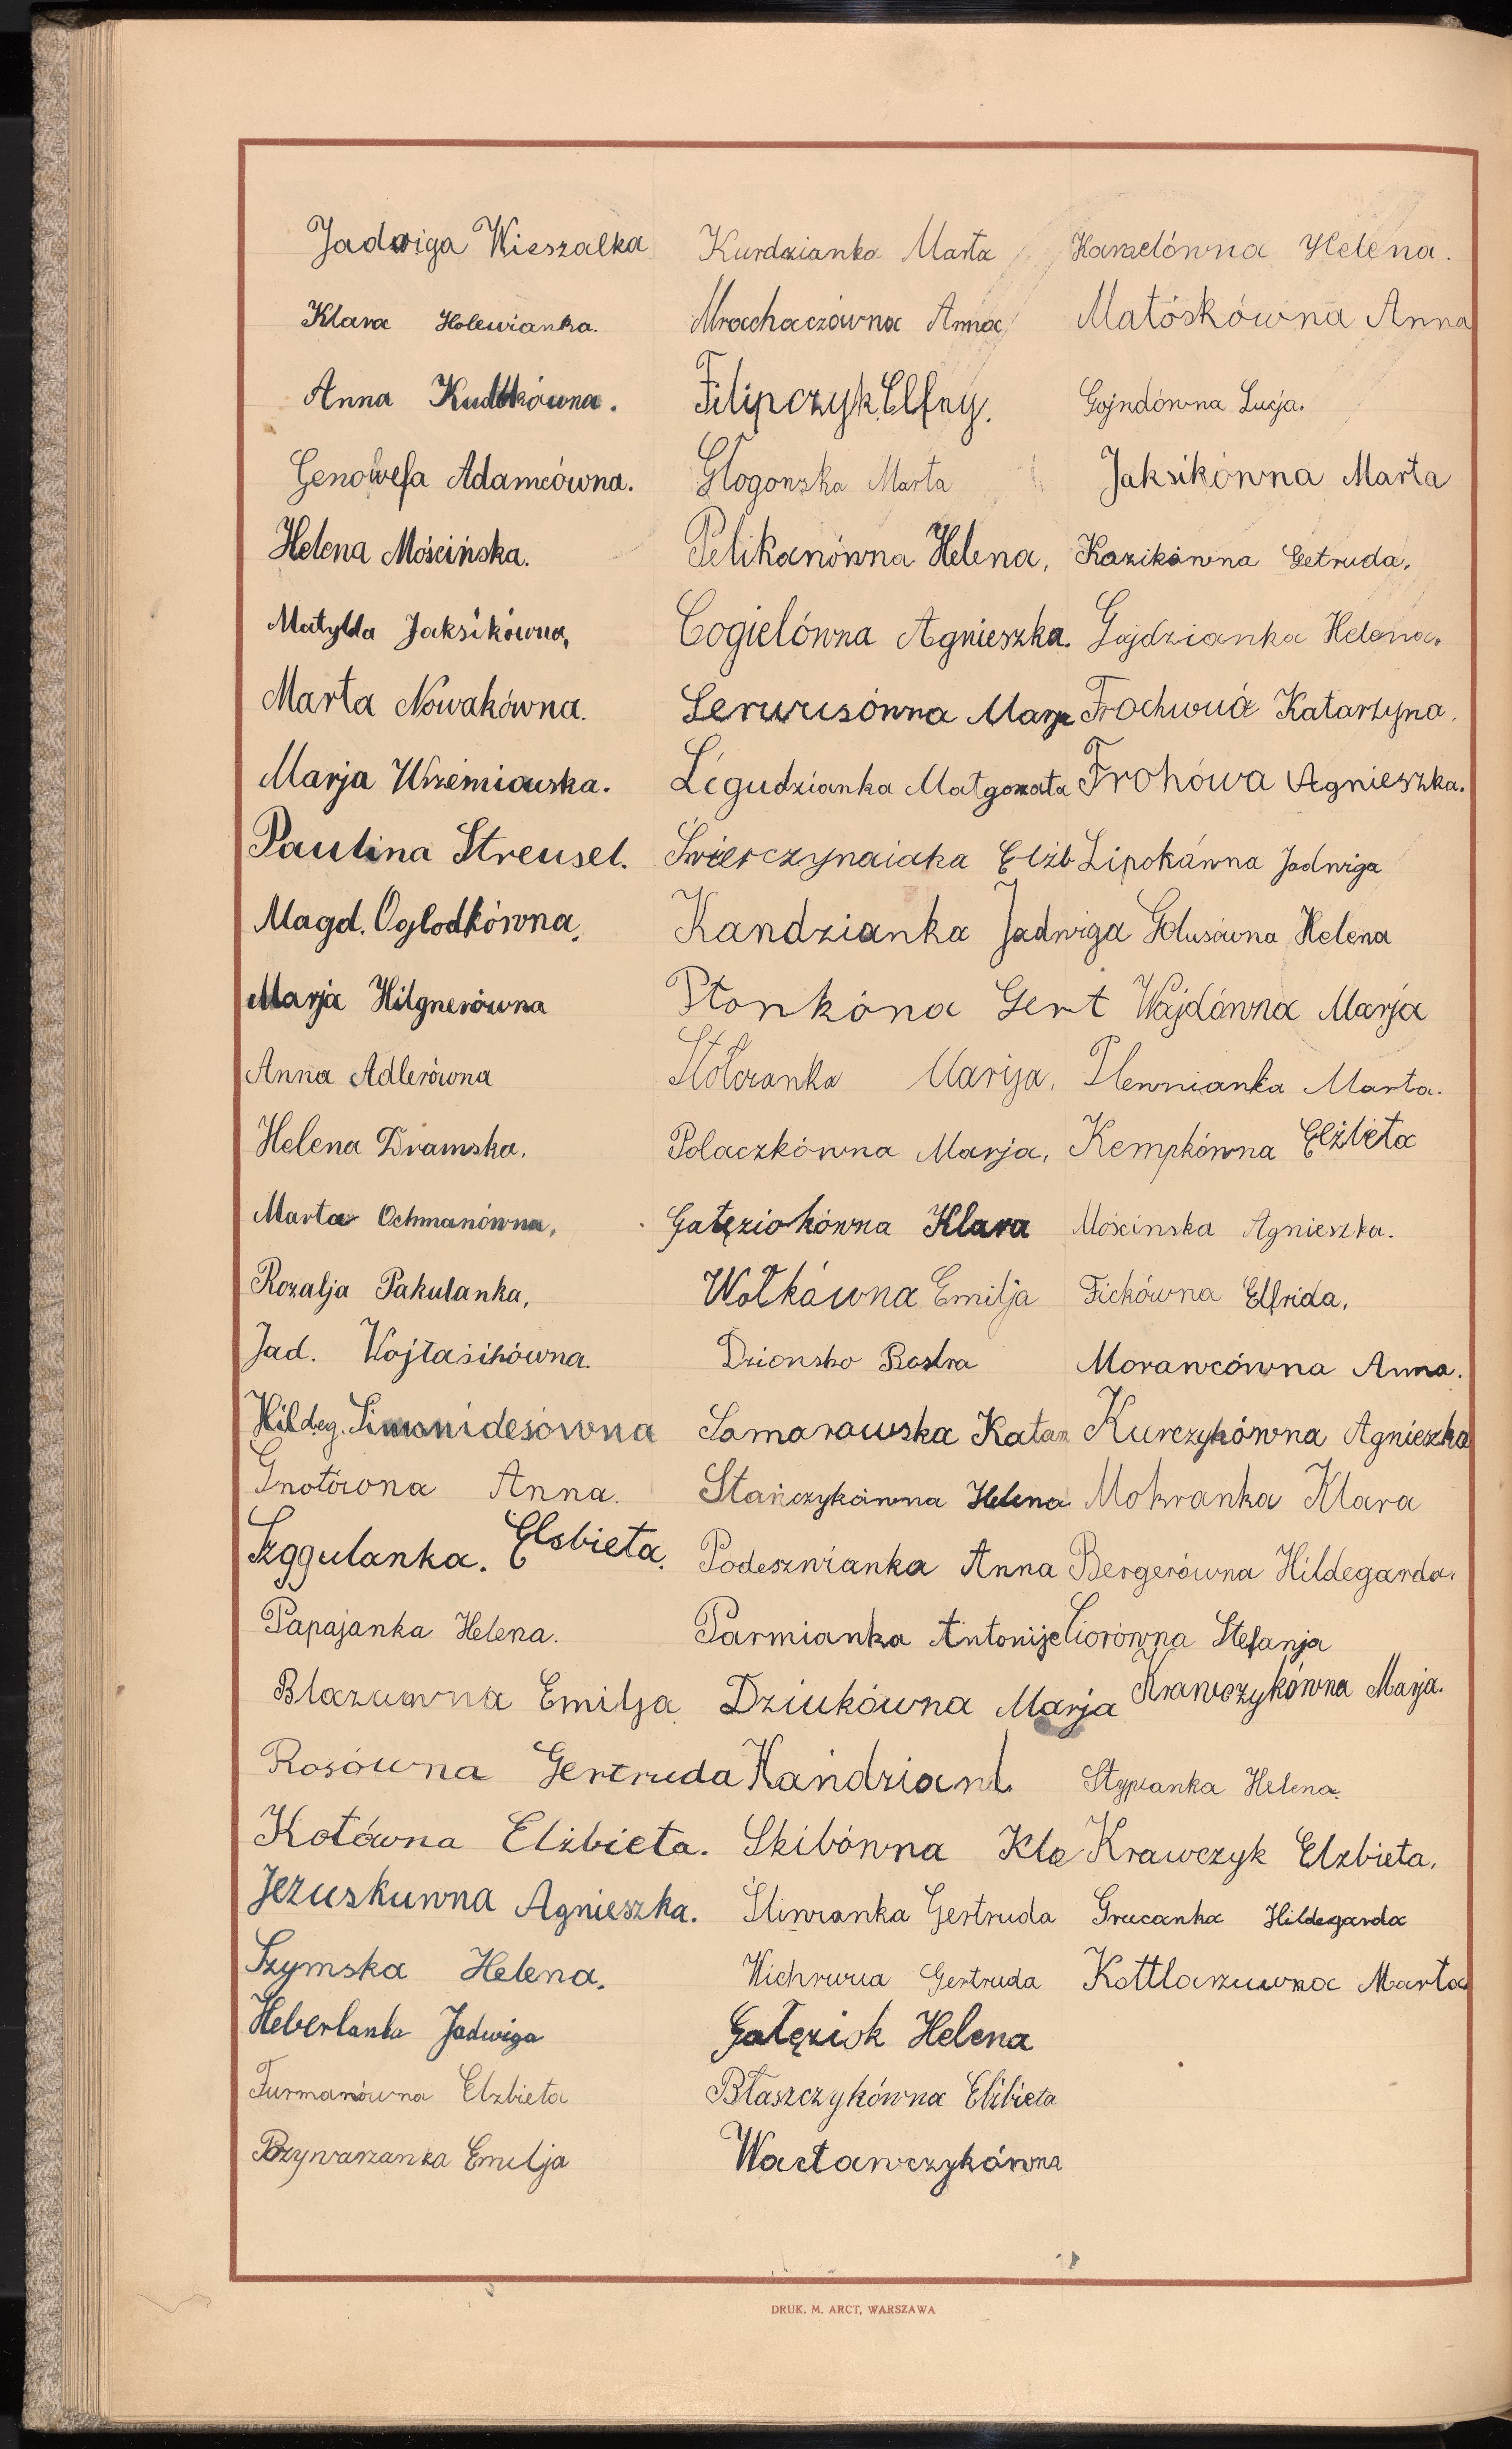 Jadwiga Wieszalka
Klara Holewianka.
Anna Kudłkówna.
Genowefa Adamcówna.
Helena Mościńska.
Matylda Jaksikówna,
Marta Nowakówna.
Marja Wrzemiowska.
Paulina Streusel.
Magd. Oglodkówna.
Marja Hilgnerówna
Anna Adlerówna
Helena Dramska.
Marta Ochmanówna,
Rozalja Pakulanka,
Jad. Wojtasikówna.
Hildeg. Simonidesówna
Gnotówna Anna.
Szggulanka. Elsbieta.
Papajanka Helena.
Blazuwna Emilja
Rosówna Gertruda
Kotówna Elżbieta.
Jezuskuwna Agnieszka.
Szymska Helena.
Heberlanka Jadwiga
Furmanówna Elzbieta
Przywarzanka Emilja
Kurdzianka Marta
Mrachaczówna Anna
Filipczyk Elfny.
Głogowska Marta
Pelikanówna Helena,
Cogielówna Agnieszka.
Lerwusówna Marja
Légudzianka Małgorzata
Świerczynaiaka Elżb
Kandzianka Jadwiga
Płonkóna Gert
Stolorzanka Marija.
Polaczkówna Marja,
Gałęziokówna Klara
Wołkówna Emilja
Dzionsko
Samarawska Katarz
Stańczykówna Helena
Podeszwianka Anna
Parmianka Antonije
Dziukówna Marja
Kańdziank
Skibówna Kla
Śliwianka Gertruda
Wichrwua Gertruda
Gałęziok Helena
Błaszczykówna Elżbieta
Wacławczykówna
Karzelówna Helena.
Matóskówna Anna
Gojndówna Lucja.
Jaksikówna Marta
Kazikówna Getruda.
Gajdzianka Helena.
Frochwuá Katarzyna.
Frohówa Agnieszka.
Lipokówna Jadwiga
Golusówna Helena
Wajdówna Marja
Plewnianka Marta.
Kempkówna Elżbieta
Mościnska Agnieszka.
Fickówna Elfrida.
Morawcówna Anna.
Kurczykówna Agnieszka
Mokranka Klara
Bergerówna Hildegarda.
Ciorówna Stefanja
Krawczykówna Marja.
Stypianka Helena.
Krawczyk Elzbieta.
Grucanka Hildegarda
Kottlarzuwna Marta
DRUK. M. ARCT, WARSZAWA